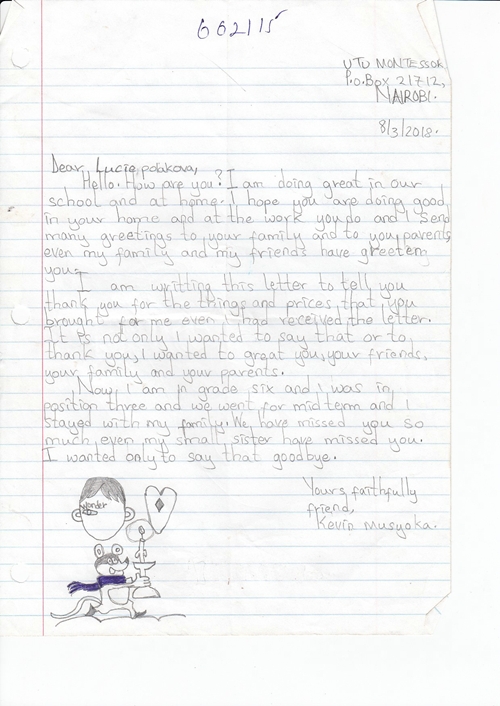 662115
UTU MONTESSOR
P.O.Box 21712,
NAIROBI.
8/3/2018.
Dear Lucie polakova,
Hello. How are you? I am doing great in our
school and at home. I hope you are doing good
in your home and at the work you do and I send
many greetings to your family and to you parents
even my family and my friends have greeten
you.
I am writting this letter to tell you
thank you for the things and prices that you
brought for me even I had received the letter.
It is not only I wanted to say that or to
thank you, I wanted to grqat you, your friends,
your family and your parents.
Now I am in grade six and I was in
position three and we went for mid term and I
stayed with my family. We have missed you so
much even my small sister have missed you.
I wanted only to say that goodbye.
Yours faithfully
friend,
Kevin Musyoka.
Wonder